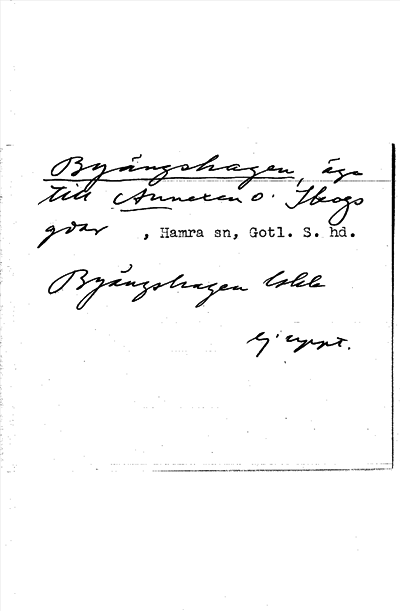 Byängshagen, äga
till Annexen o. Skogs
gdar , Hamra sn, Gotl. S. hd.
Byängshagen
ej uppt.